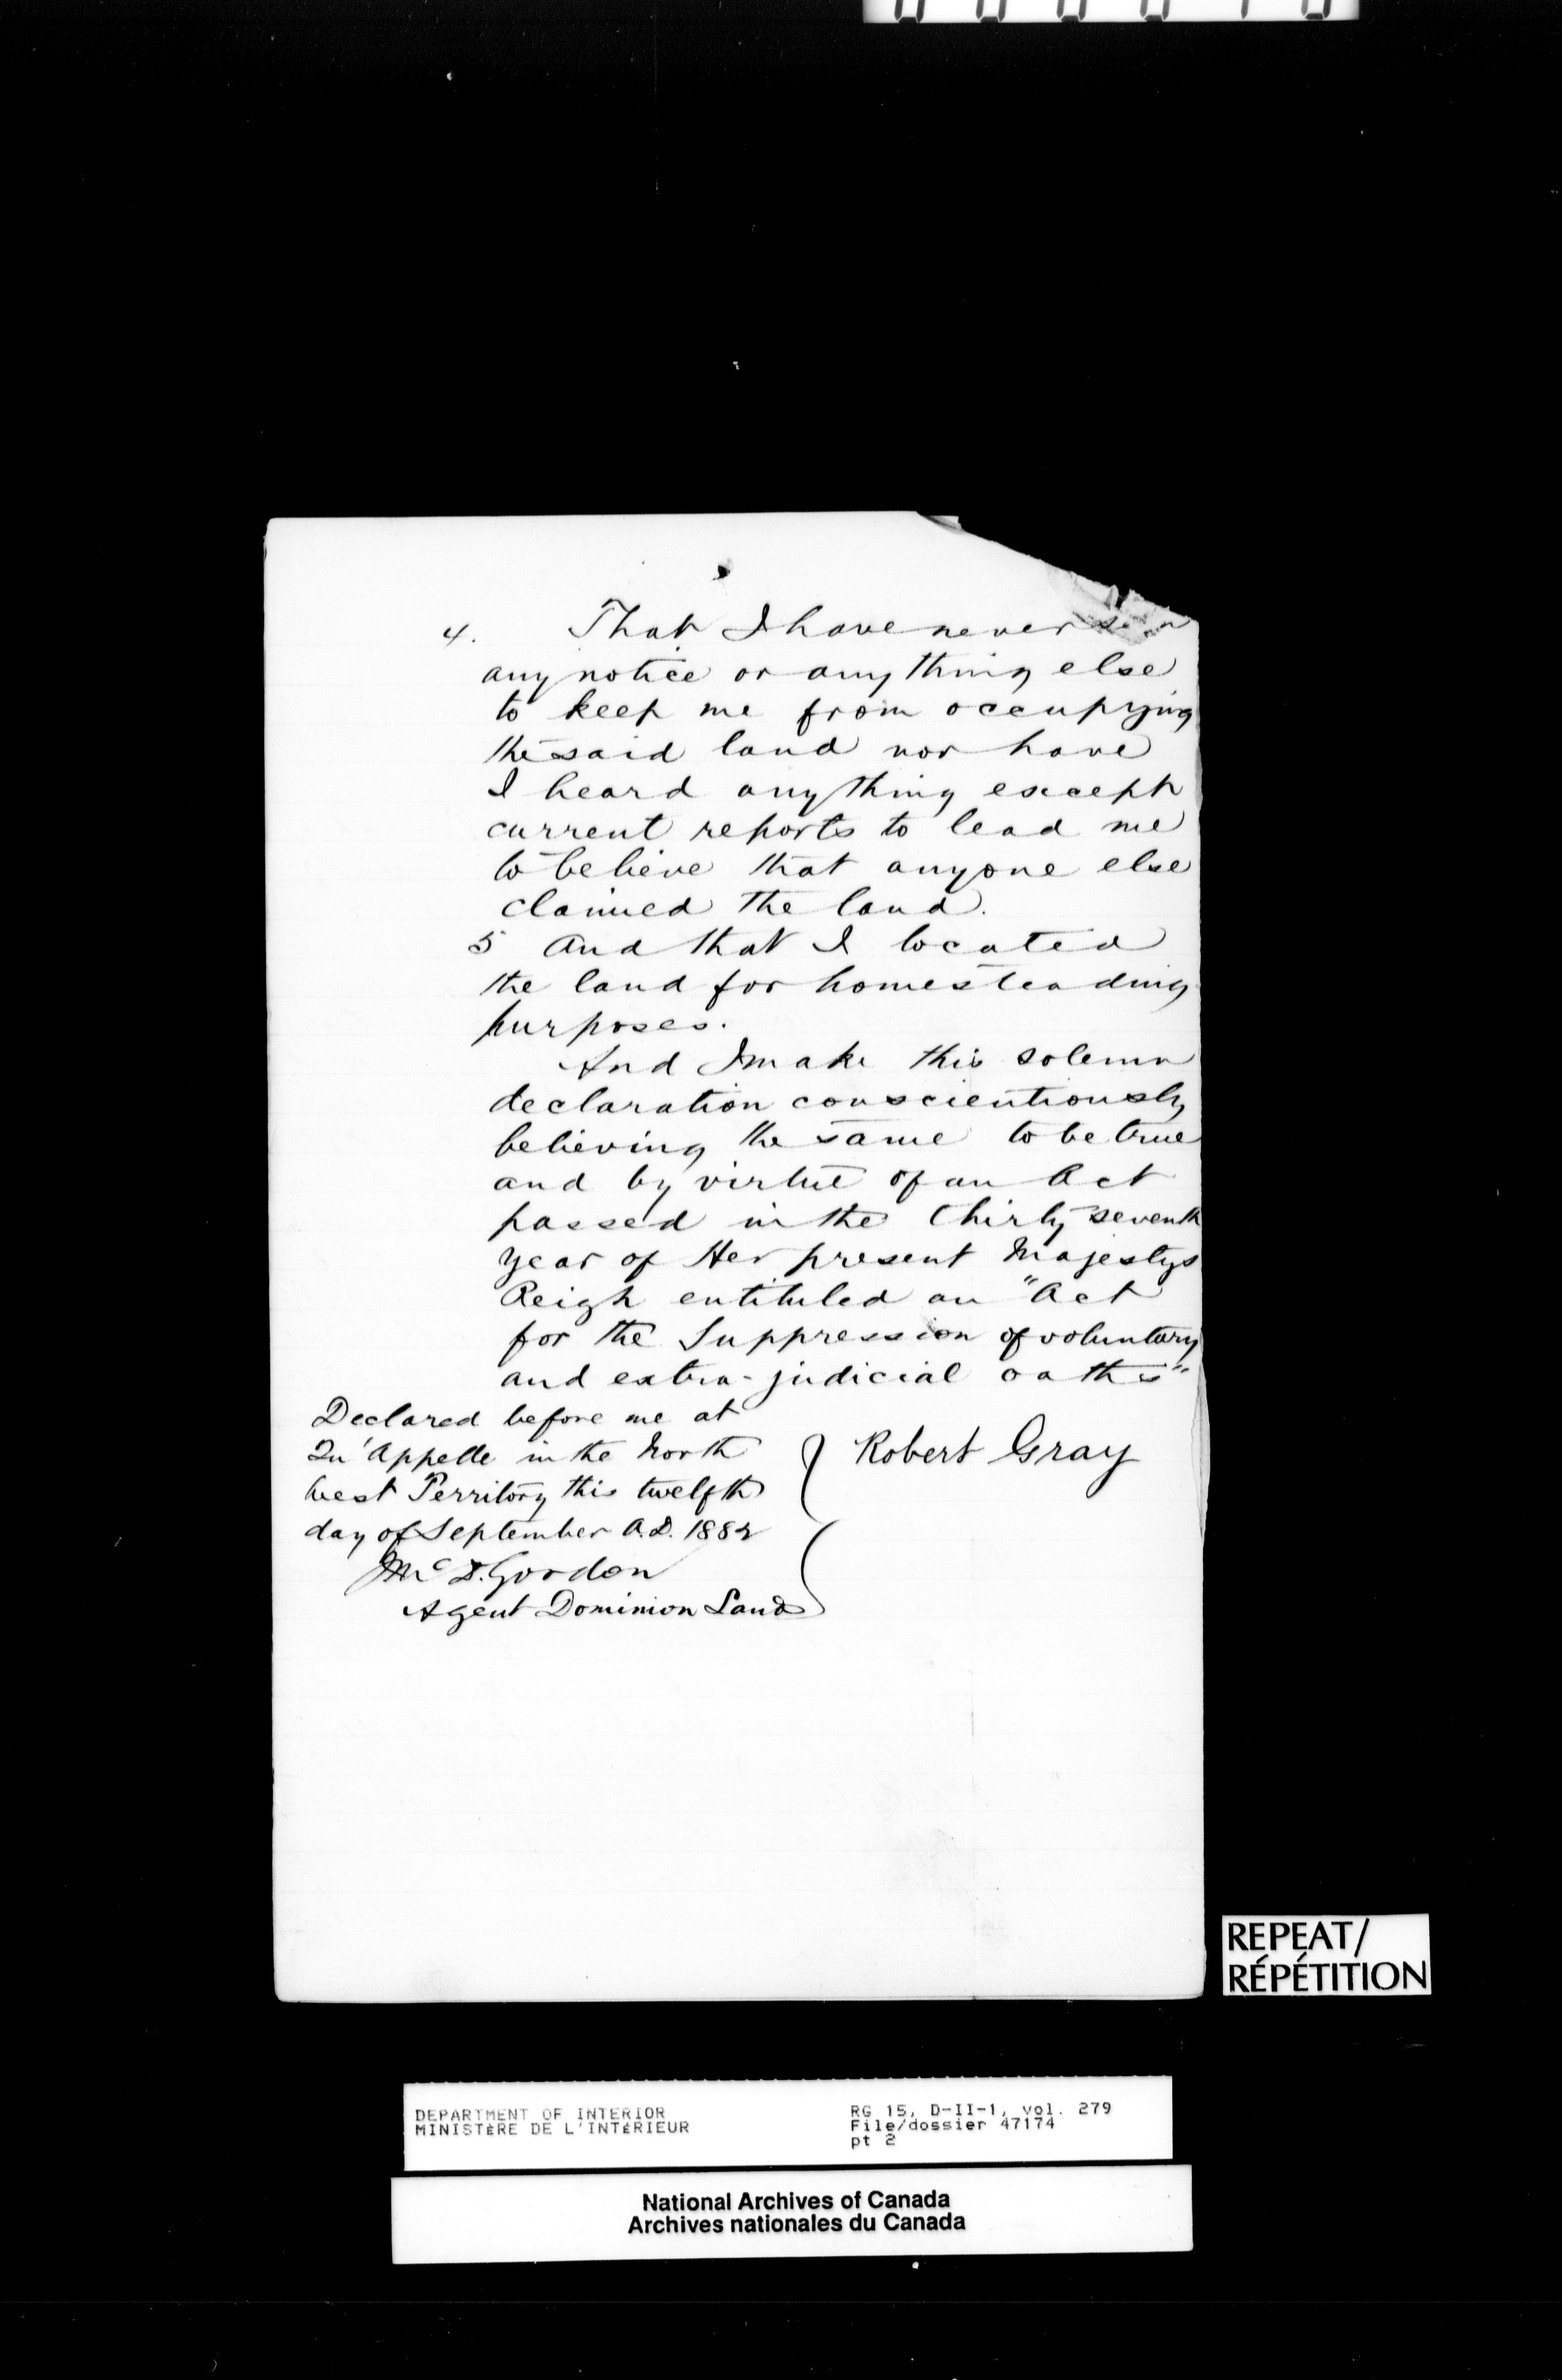 4. That I have never seen
any notice or any thing else
to keep me from occupying
the said land nor have
I heard any thing except
current reports to lead me
to believe that anyone else
claimed the land.
5 And that I located
the land for homesteading
purposes.
And I make this solemn
declaration conscientiously
believing the same to be true
and by virtue of an Act
passed in the thirty seventh
year of Her present Majestys
Reigh entituled an "Act
for the Suppression of voluntary
and extra-judicial oaths"
Declared before me at
Qu'Appelle in the North
West Territory this twelfth
day of September A.D. 1882
Robert Gray
McD. Gordon
Agent Dominion Lands
REPEAT/
RÉPÉTITION
DEPARTMENT OF INTERIOR
MINISTÈRE DE L'INTÉRIEUR
RG 15, D-II-1, vol. 279
File/dossier 47174
pt 2
National Archives of Canada
Archives nationales du Canada